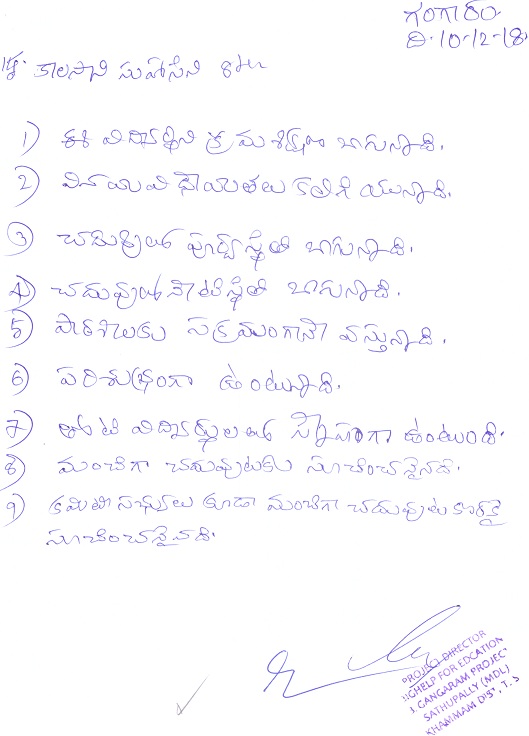 గంగారం.
ది. 10-12-18
కాలసాని సుహాసిని 8th
1) ఈ విద్యార్థిని క్రమశిక్షణ బాగున్నది.
2) వినయ విధేయతలు కలిగి యున్నది.
3) చదువులో పూర్వస్థితి బాగున్నది.
4) చదువులో నేటిస్థితి బాగున్నది.
5) పాఠశాలకు సక్రమంగానే వస్తున్నది.
6) పరిశుభ్రంగా ఉంటున్నది.
7) తోటి విద్యార్థులతో స్నేహంగా ఉంటుంది.
8) మంచిగా చదువుటకు సూచించనైనది.
9) కమిటి సభ్యులు కూడా మంచిగా చదువుట కొరకై
సూచించనైనది.
PROJECT DIRECTOR
HELP FOR EDCATION
GANGARAM PROJEC
SATHUPALLY (MDL)
KHAMMAM DIST, T.S